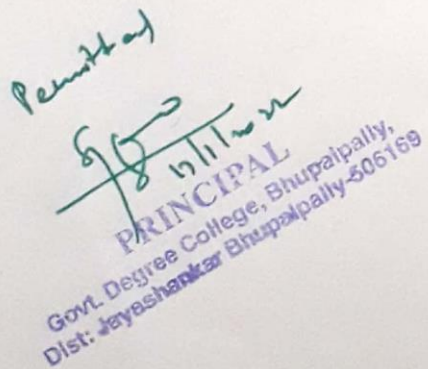 Permitted
12/1/2022
PRINCIPAL
Govt. Degree College, Bhupalpally,
Dist: Jayashankar Bhupalpally-506169